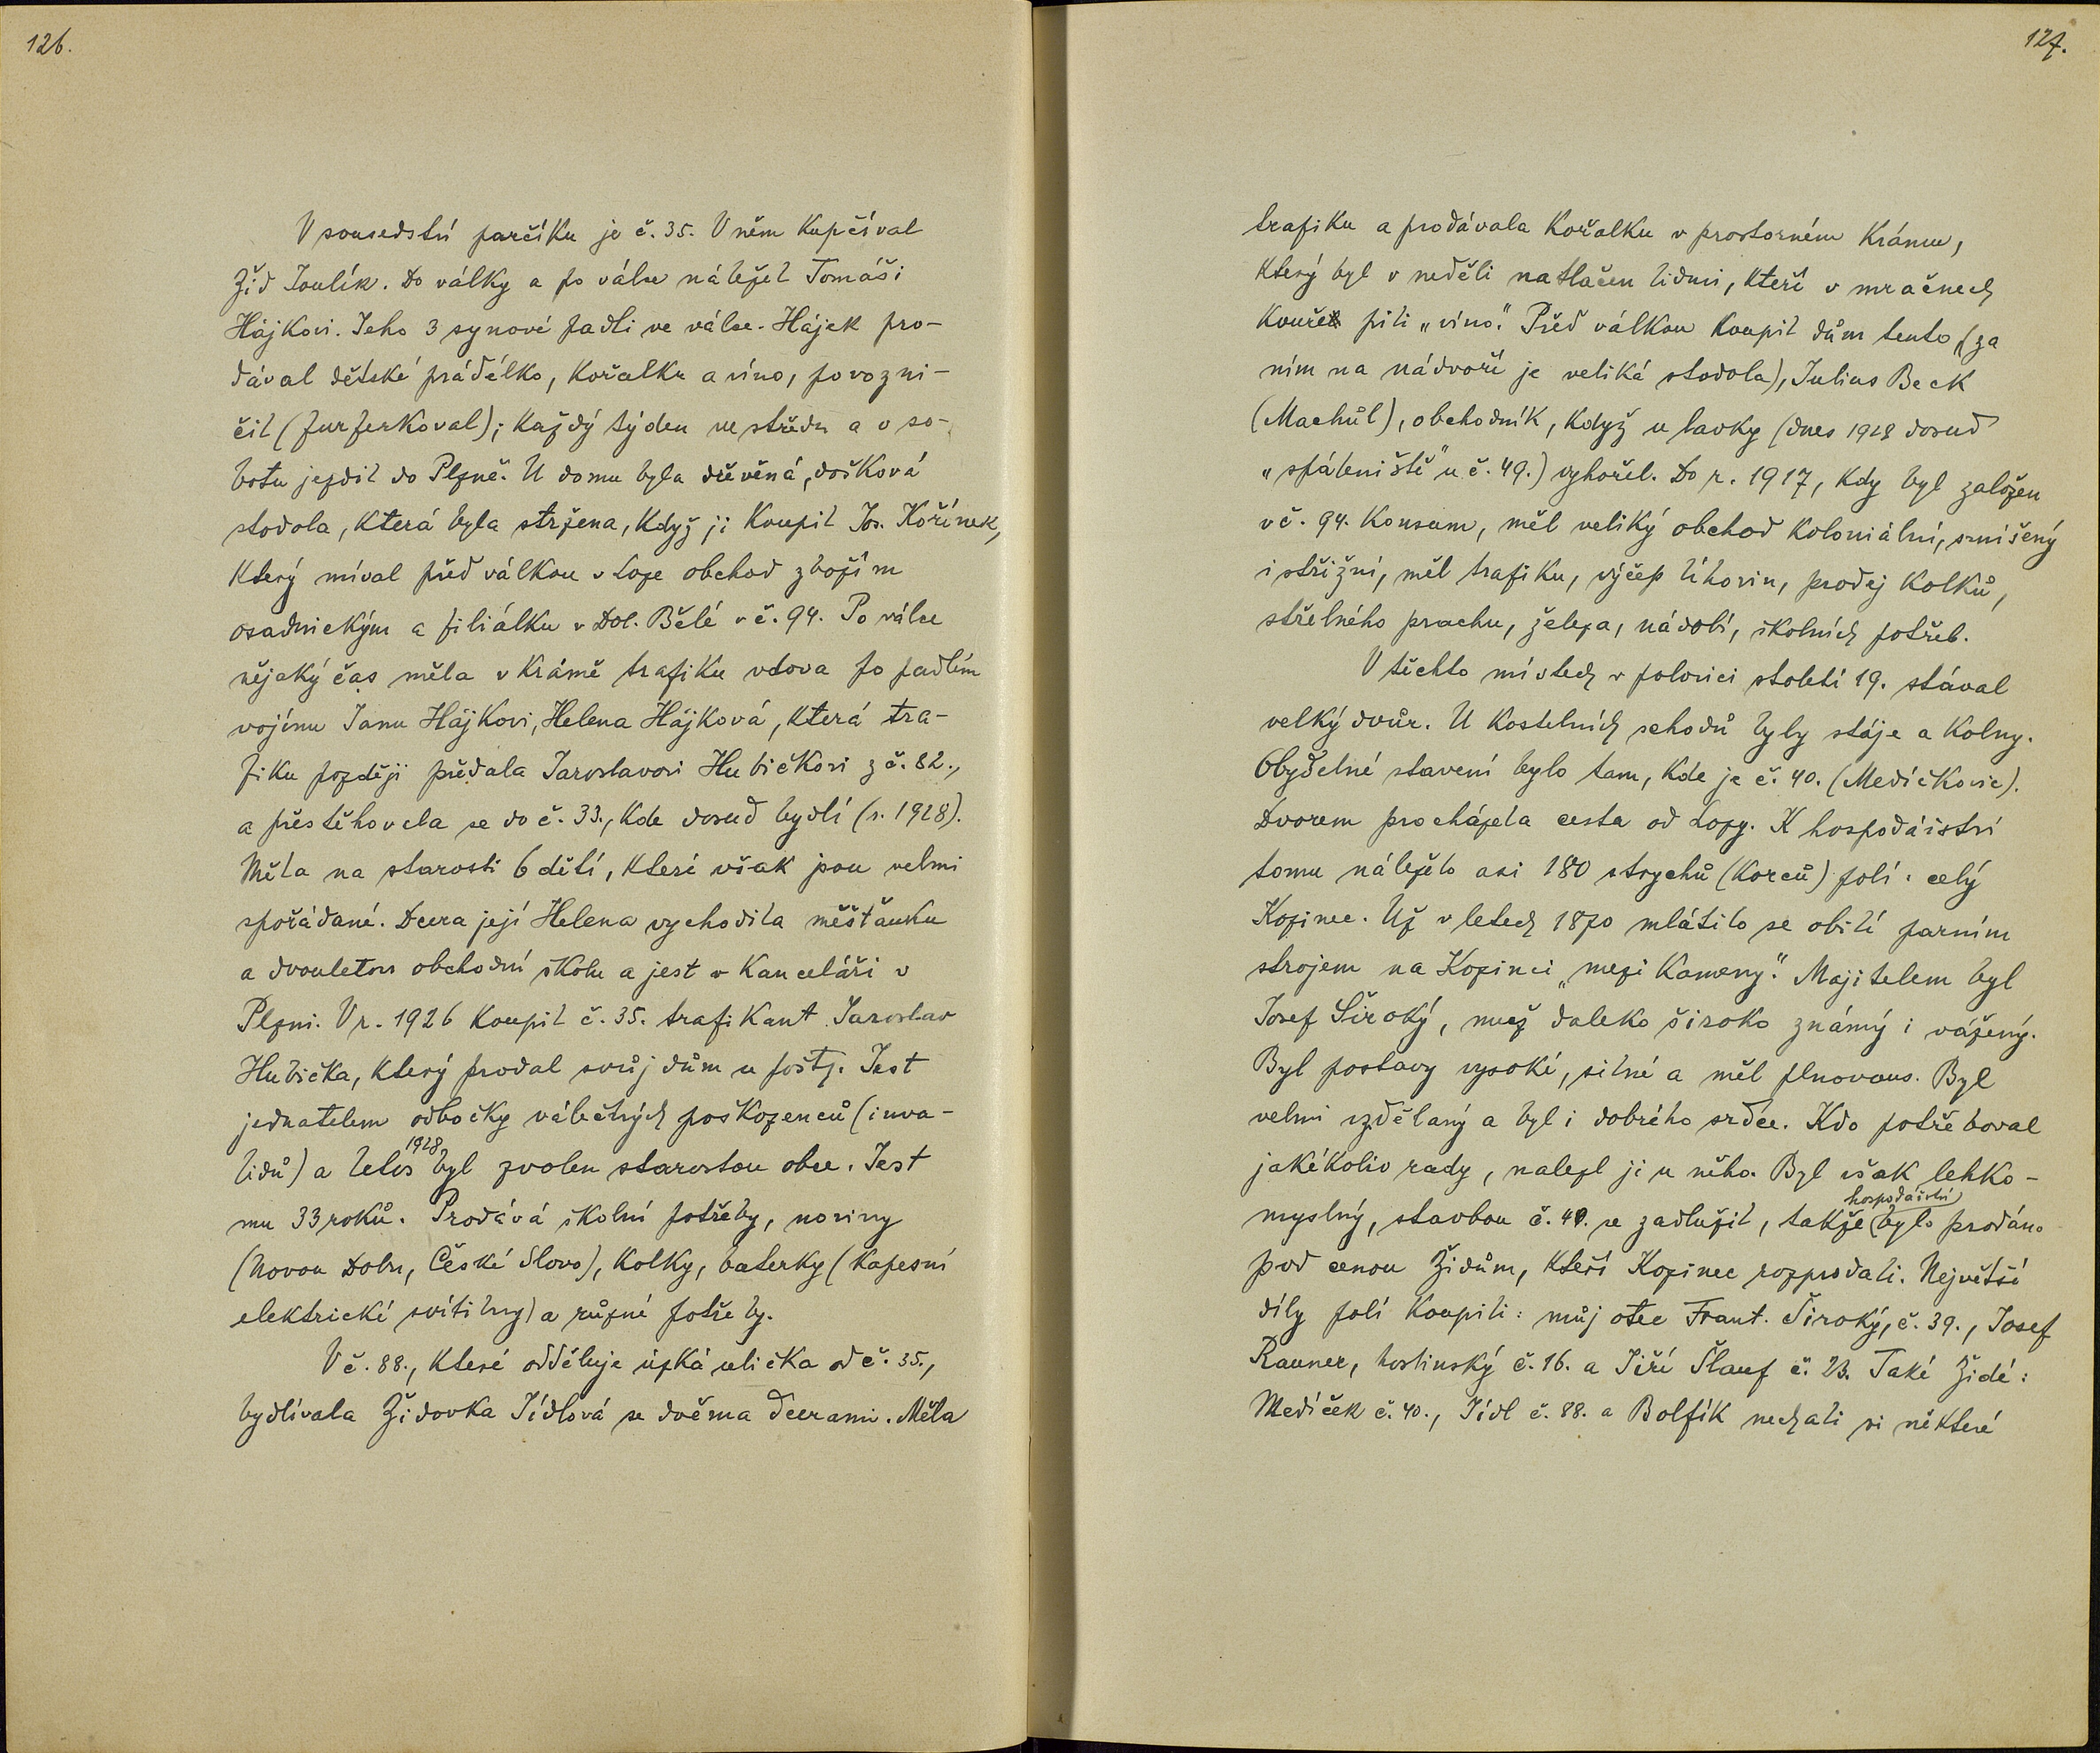 126.
V sousedství parčíku je č. 35. V něm kupčíval
Žid Joulík. Do války a po válce náležel Tomáši
Hájkovi. Jeho 3 synové padli ve válce. Hájek pro-
dával dětské prádélko, kořalku a víno, povozni-
čil (furferkoval); každý týden ve středu a v so-
botu jezdil do Plzně. U domu byla dřevěná, došková
stodola, která byla stržena, když ji koupil Jos. Kořínek,
který míval před válkou v Loze obchod zbožím
osadnickým a filiálku v Dol. Bělé v č. 94. Po válce
nějaký čas měla v krámě trafiku vdova po padlém
vojínu Janu Hájkovi, Helena Hájková, která tra-
fiku později předala Jaroslavovi Hubičkovi z č. 82.,
a přestěhovala se do č. 33., kde dosud bydlí (r. 1928).
Měla na starosti 6 dětí, které však jsou velmi
spořádané. Dcera její Helena vychodila měšťanku
a dvouletou obchodní školu a jest v kanceláři v
Plzni. V r. 1926 koupil č. 35. trafikant Jaroslav
Hubička, který prodal svůj dům u pošty. Jest
jednatelem odbočky válečných poškozenců (inva-
lidů) a letos 1928 byl zvolen starostou obce. Jest
mu 33 roků. Prodává školní potřeby, noviny
(Novou Dobu, České Slovo), kolky, baterky (kapesní
elektrické svítilny) a různé potřeby.
V č. 88., které odděluje úzká ulička od č. 35.,
bydlívala Židovka Jídlová se dvěma dcerami. Měla
127.
trafiku a prodávala kořalku v prostorném krámu,
který byl v neděli natlačen lidmi, kteří v mračnech
kouře pili „víno.“ Před válkou koupil dům tento (za
ním na nádvoří je veliká stodola), Julius Beck
(Machůl), obchodník, když u lavky (dnes 1928 dosud
„spáleniště“ u č. 49.) vyhořel. Do r. 1917, kdy byl založen
v č. 94. Konsum, měl veliký obchod koloniální, smíšený
i střižní, měl trafiku, výčep lihovin, prodej kolků,
střelného prachu, železa, nádobí, školních potřeb.
V těchto místech v polovici století 19. stával
velký dvůr. U kostelních schodů byly stáje a kolny.
Obydelné stavení bylo tam, kde je č. 40. (Medíčkovic).
Dvorem procházela cesta od Lozy. K hospodářství
tomu náleželo asi 180 strychů (korců) polí: celý
Kozinec. Už v letech 1870 mlátilo se obilí parním
strojem na Kozinci „mezi kameny.“ Majitelem byl
Josef Široký, muž daleko široko známý i vážený.
Byl postavy vysoké, silné a měl plnovous. Byl
velmi vzdělaný a byl i dobrého srdce. Kdo potřeboval
jakékoliv rady, nalezl ji u něho. Byl však lehko-
myslný, stavbou č. 49. se zadlužil, takže hospodářství bylo prodáno
pod cenou Židům, kteří Kozinec rozprodali. Největší
díly polí koupili: můj otec Frant. Široký, č. 39., Josef
Rauner, hostinský č. 16. a Jiří Šlauf č. 23. Také Židé:
Medíček č. 40., Jídl č. 88. a Bolfík nechali si některé